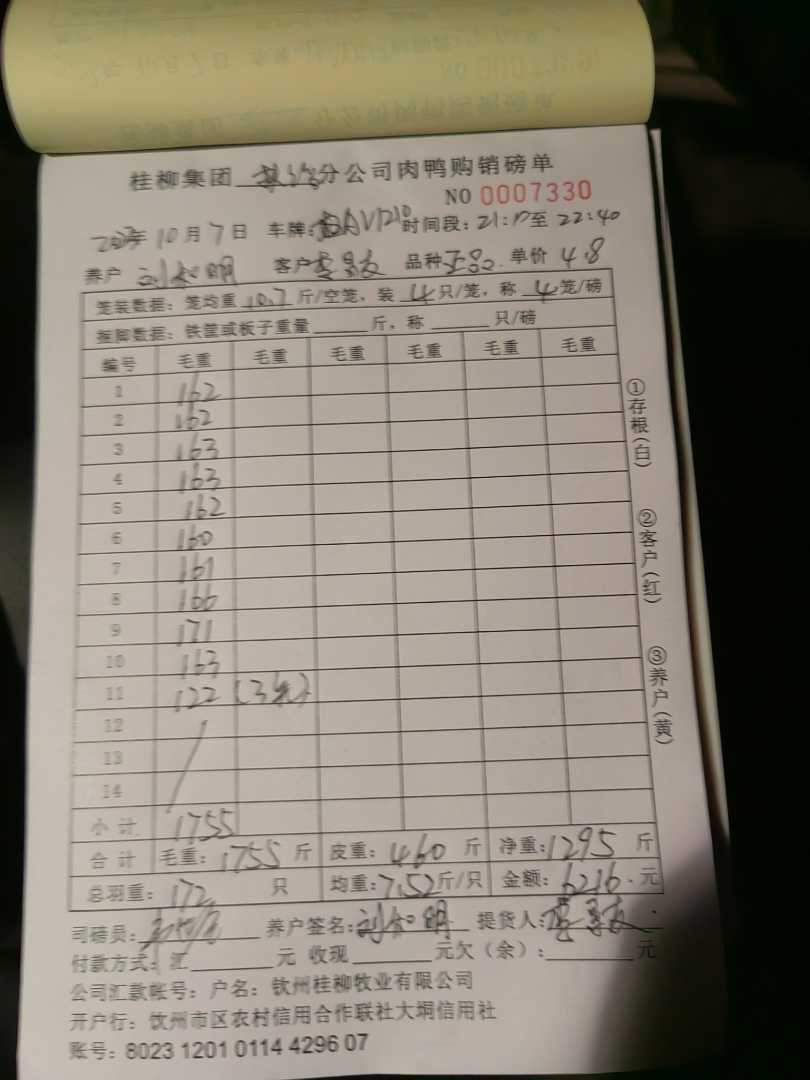 桂柳集团 分公司肉鸭购销磅单
NO 0007330
年 10月 7日 车牌: 时间段: 21:17至 22:40
养户 刘知明 客户 李易友 品种 正品 单价 4.8
笼装数据: 笼均重 10.7 斤/空笼, 装 4 只/笼, 称 4 笼/磅
捆脚数据: 铁筐或板子重量 斤, 称 只/磅
编号 毛重 毛重 毛重 毛重 毛重 毛重
1 162
2 162
3 163
4 163
5 162
6 160
7 161
8 166
9 171
10 163
11 122 (3笼)
12
13
14
小计 1755
合计 毛重: 1755 斤 皮重: 460 斤 净重: 1295 斤
总羽重: 172 只 均重: 7.52 斤/只 金额: 6216. 元
司磅员: 养户签名: 刘知明 提货人: 李易友
付款方式: 汇 元 收现 元欠(余): 元
公司汇款帐号: 户名: 钦州桂柳牧业有限公司
开户行: 钦州市区农村信用合作联社大垌信用社
账号: 8023 1201 0114 4296 07
①存根(白)
②客户(红)
③养户(黄)